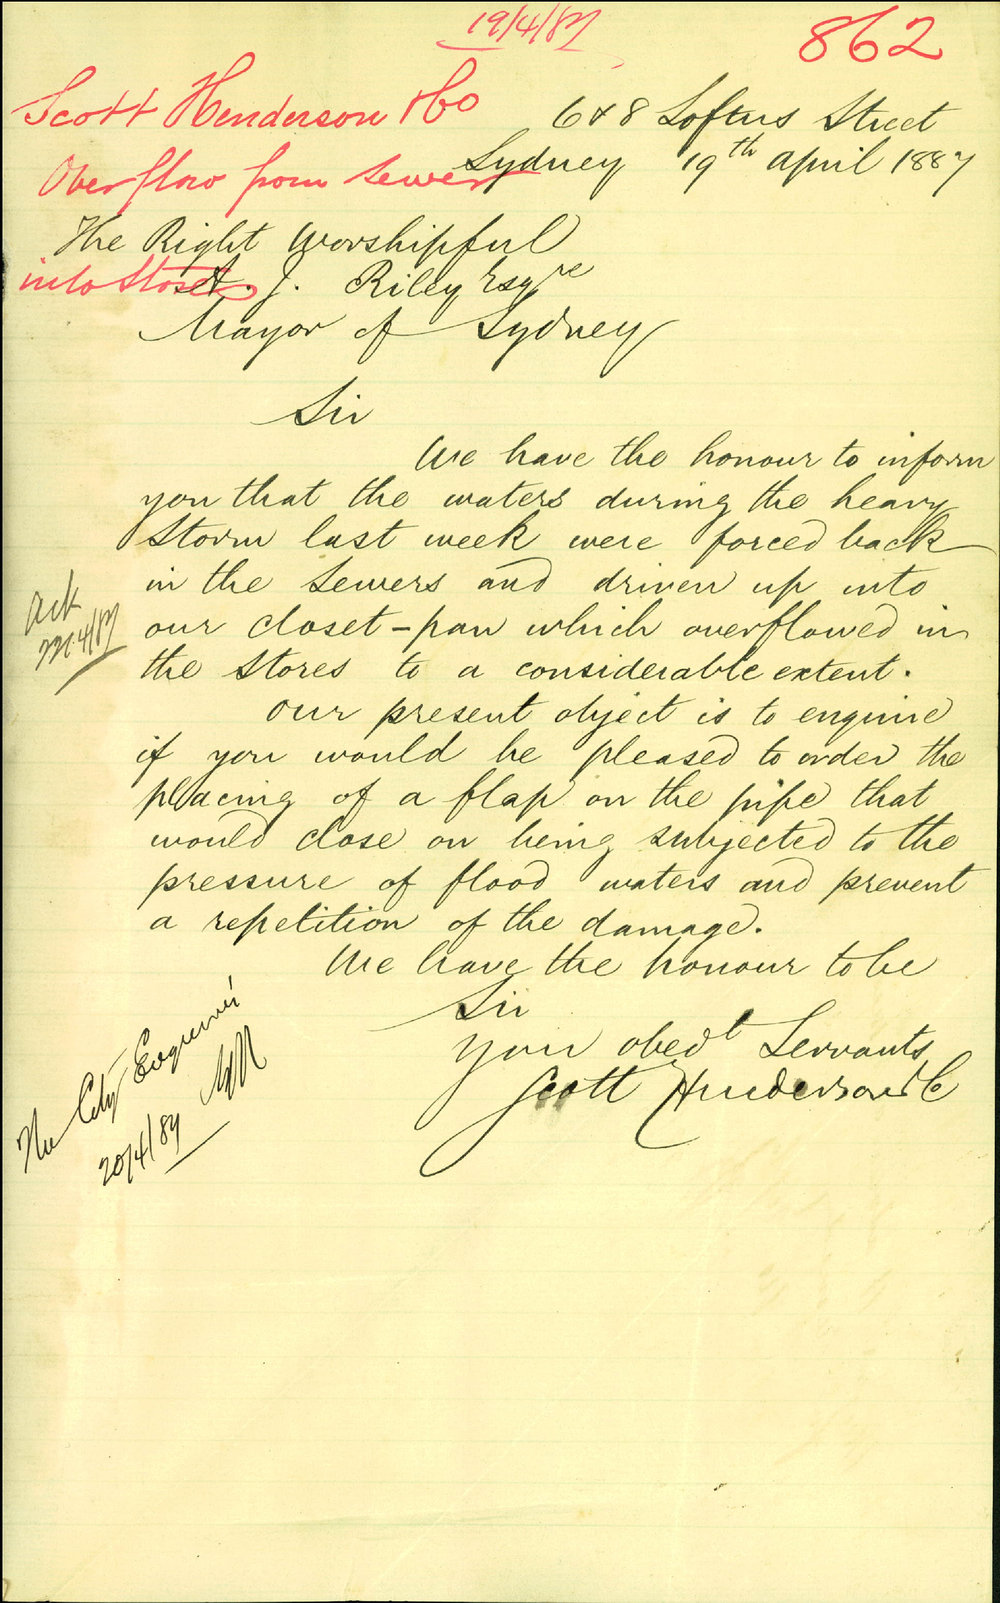 19/4/87
862
Scott Henderson & Co
6 & 8 Loftus Street
Sydney 19th April 1887
Overflow from Sewer
The Right Worshipful
into Stores
A. J. Riley Esqre
Mayor of Sydney
Sir
We have the honour to inform
you that the waters during the heavy
Storm last week were forced back
in the Sewers and driven up into
our closet-pan which overflowed in
the Stores to a considerable extent.
Ack
22.4/87
Our present object is to enquire
if you would be pleased to order the
placing of a flap on the pipe that
would close on being subjected to the
pressure of flood waters and prevent
a repetition of the damage.
We have the honour to be
Sir
Your obedt Servants
Scott Henderson & Co
The City Engineer
20/4/87